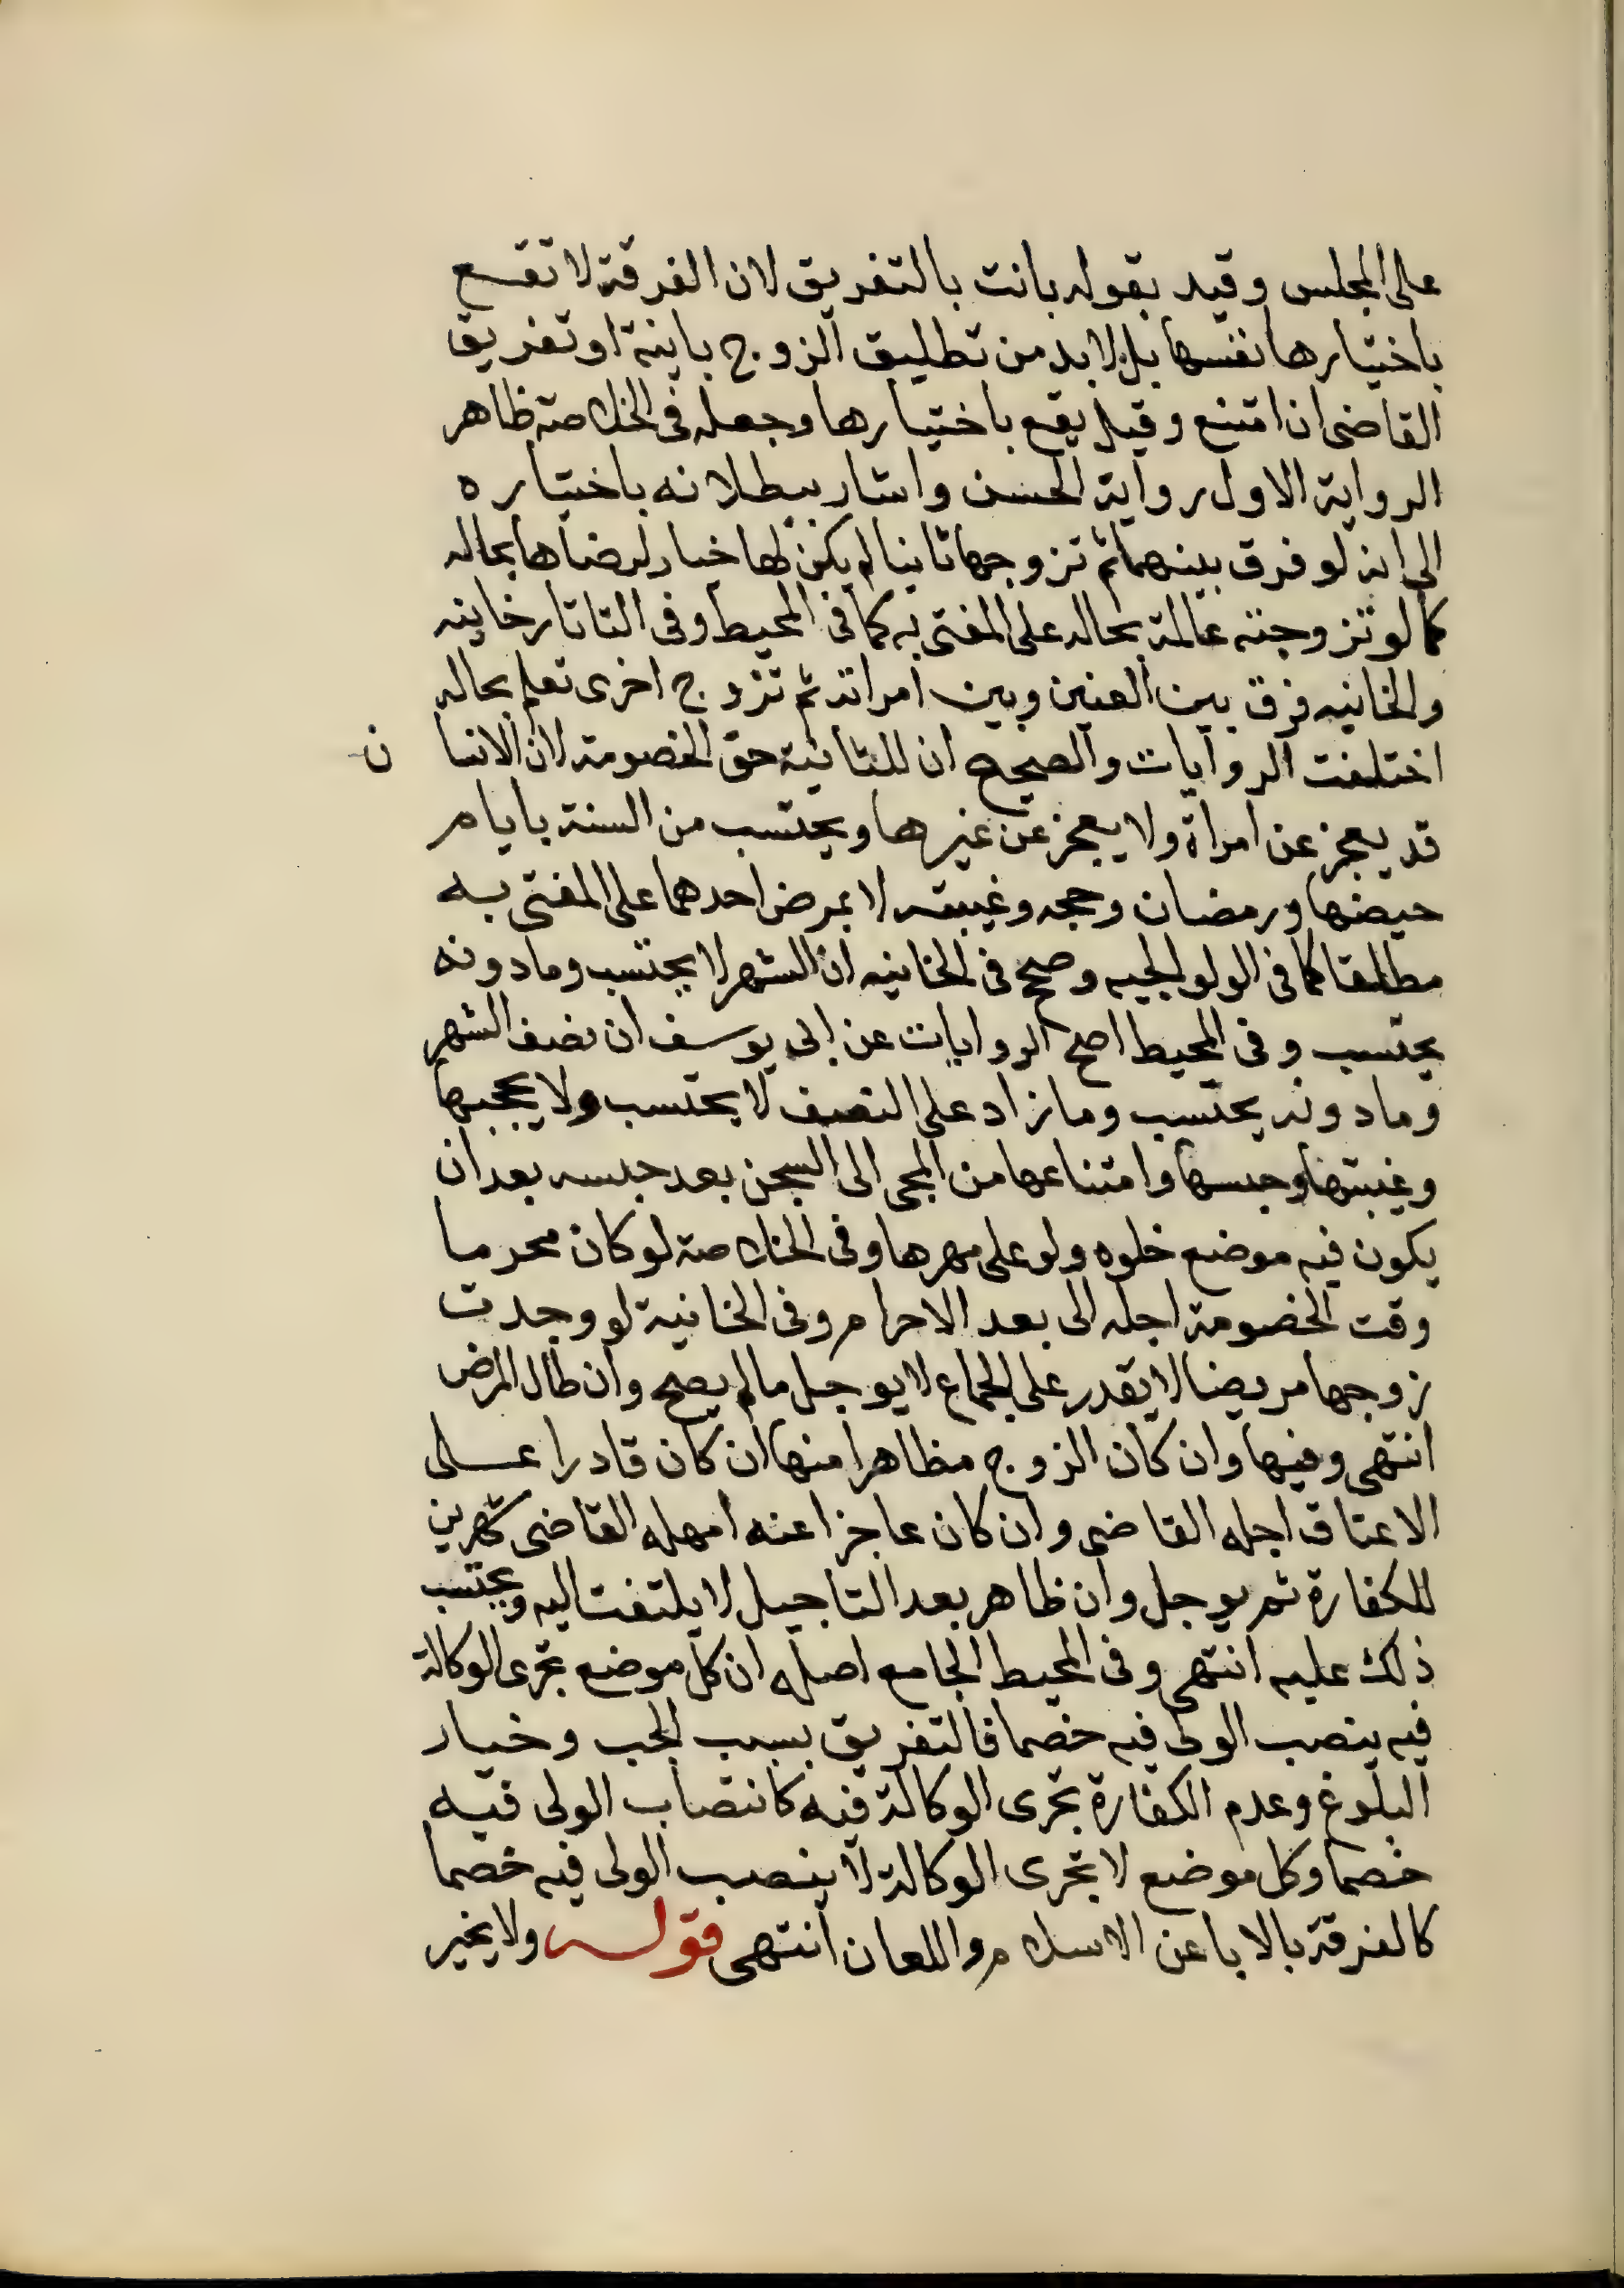 على المجلس وقيد بقوله بانت بالتفريق لان الفرقة لا تقع
باختيارها نفسها بل لابد من تطليق الزوج باينة او تفريق
القاضى ان امتنع وقيل يقع باختيارها وجعله فى الخلاصة ظاهر
الرواية الاول رواية الحسن واشار ببطلانه باختياره
الى انه لو فرق بينهما ثم تزوجها ثانيا لم يكن لها خيار لرضاها بحاله
كما لو تزوجته عالمة بحاله على المفتى به كما فى المحيط وفى التاتارخانيه
والخانيه فرق بين العنين وبين امراته ثم تزوج اخرى تعلم بحاله
اختلفت الروايات والصحيح ان للثانية حق الخصومة لان الانسان
قد يعجز عن امراة ولا يعجز عن غيرها ويحتسب من السنة بايام
حيضها ورمضان وحجه وغيبته لا بمرض احدهما على المفتى به
مطلقا كما فى الولوالجيه وصحح فى الخانيه ان الشهر لا يحتسب ومادونه
يحتسب وفى المحيط اصح الروايات عن ابى يوسف ان نصف الشهر
ومادونه يحتسب ومازاد على النصف لا يحتسب ولا بحجها
وغيبتها وحبسها وامتناعها من المجى الى السجن بعد حبسه بعد ان
يكون فيه موضع خلوه ولو على مهرها وفى الخلاصة لو كان محرما
وقت الخصومة اجله الى بعد الاحرام وفى الخانية لو وجدت
زوجها مريضا لا يقدر على الجماع لا يوجل مالم يصح وان طال المرض
انتهى وفيها وان كان الزوج مظاهرا منها ان كان قادرا على
الاعتاق اجله القاضى وان كان عاجزا عنه امهله القاضى شهرين
للكفارة ثم يوجل وان ظاهر بعد التاجيل لا يلتفت اليه ويحتسب
ذلك عليه انتهى وفى المحيط الجامع اصله ان كل موضع تجرى الوكالة
فيه ينصب الولى فيه خصما فالتفريق بسبب الجب وخيار
البلوغ وعدم الكفارة تجرى الوكالة فيه كانتصاب الولى فيه
خصما وكل موضع لا تجرى الوكالة لا ينصب الولى فيه خصما
كالفرقة بالابا عن الاسلام واللعان انتهى قوله ولا يخير